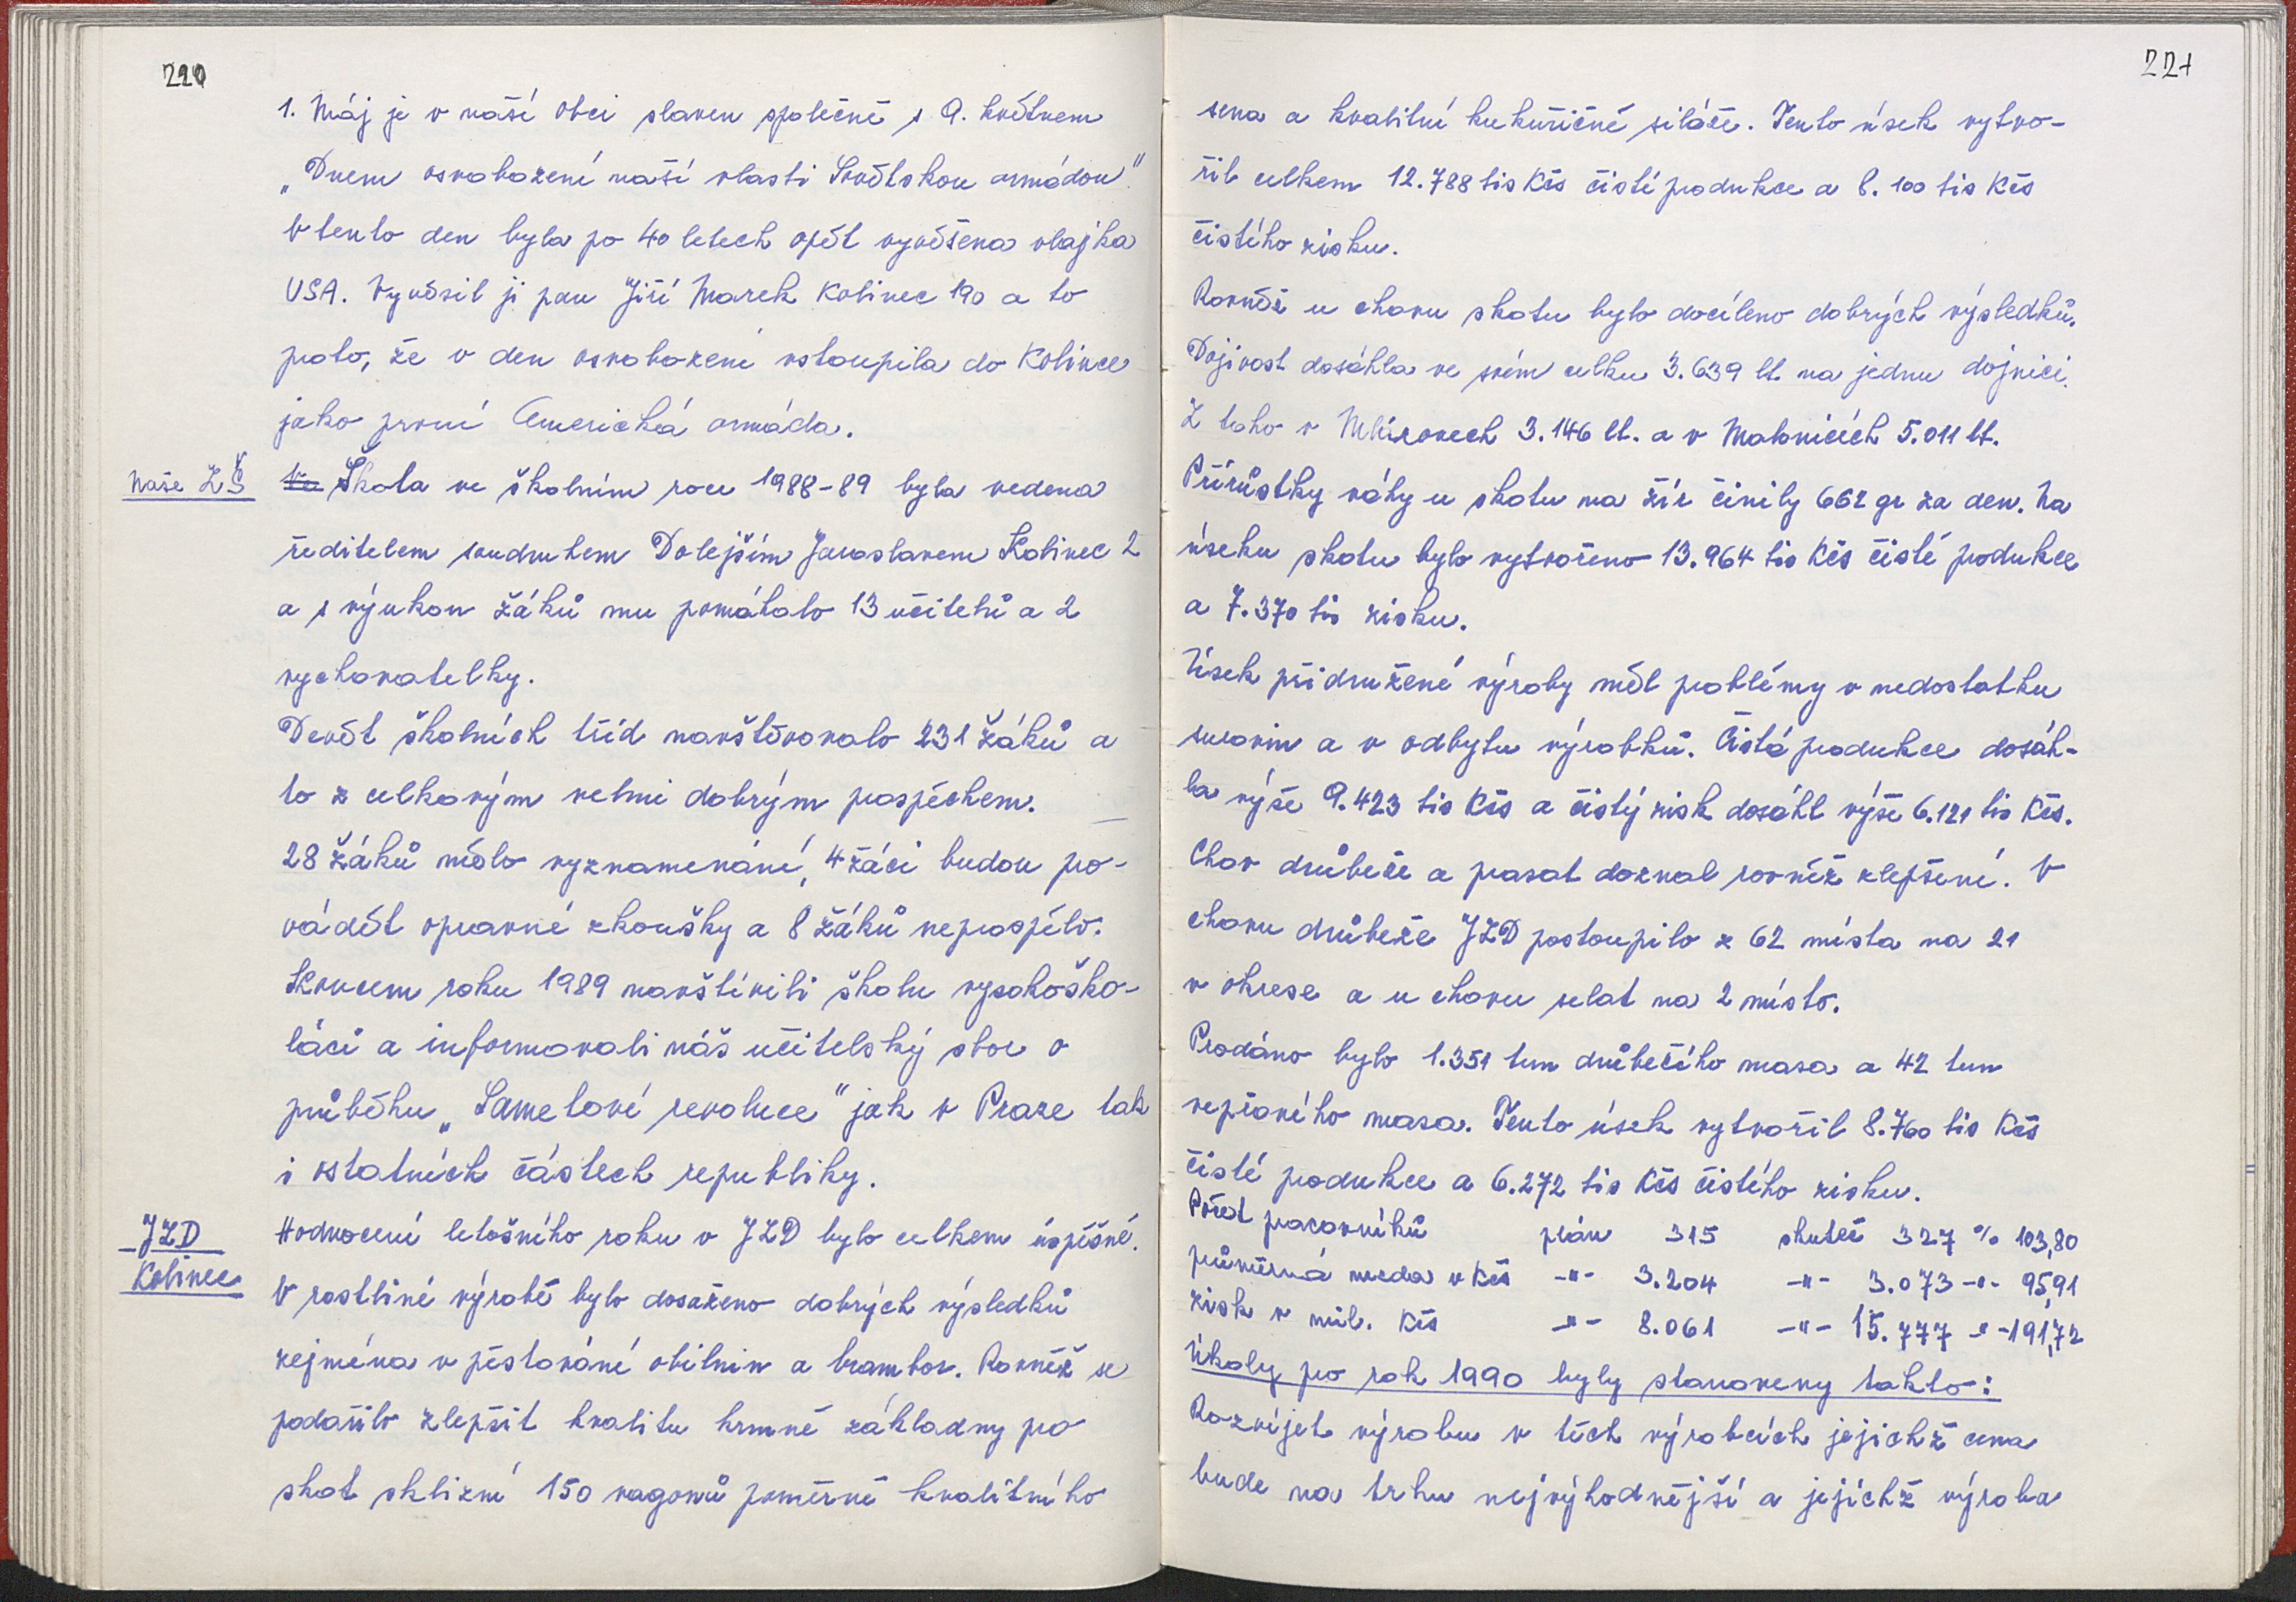 220
1. Máj je v naší obci slaven společně s 9. květnem
„Dnem osvobození naší vlasti Sovětskou armádou“.
V tento den byla po 40 letech opět vyvěšena vlajka
USA. Vyvěsil ji pan Jiří Marek Kolinec 190 a to
proto, že v den osvobození vstoupila do Kolince
jako první Americká armáda.
Naše ZŠ
Škola ve školním roce 1988-89 byla vedena
ředitelem soudruhem Dolejším Jaroslavem Kolinec 2
a s výukou žáků mu pomáhalo 13 učitelů a 2
vychovatelky.
Devět školních tříd navštěvovalo 231 žáků a
to z celkovým velmi dobrým prospěchem.
28 žáků mělo vyznamenání, 4 žáci budou pro-
vádět opravné zkoušky a 8 žáků neprospělo.
Koncem roku 1989 navštívili školu vysokoško-
láci a informovali náš učitelský sbor o
průběhu „Sametové revoluce“ jak v Praze tak
i ostatních částech republiky.
JZD
Kolinec
Hodnocení letošního roku v JZD bylo celkem úspěšné.
V rostliné výrobě bylo dosaženo dobrých výsledků
zejména v pěstování obilnin a brambor. Rovněž se
podařilo zlepšit kvalitu krmné základny pro
skot sklizní 150 vagonů poměrně kvalitního
221
sena a kvalitní kukuřičné siláže. Tento úsek vytvo-
řil celkem 12.788 tis Kčs čisté produkce a 8.100 tis Kčs
čistého zisku.
Rovněž u chovu skotu bylo docíleno dobrých výsledků.
Dojivost dosáhla ve svém celku 3.639 lt na jednu dojnici.
Z toho v Mlázovech 3.146 lt. a v Malonicích 5.011 lt.
Přírůstky váhy u skotu na žír činily 662 gr za den. Na
úseku skotu bylo vytvořeno 13.964 tis Kčs čisté produkce
a 7.370 tis zisku.
Úsek přidružené výroby měl problémy v nedostatku
surovin a v odbytu výrobků. Čistá produkce dosáh-
la výše 9.423 tis Kčs a čistý zisk dosáhl výše 6.121 tis Kčs.
Chov drůbeže a prasat doznal rovněž zlepšení. V
chovu drůbeže JZD postoupilo z 62 místa na 21
v okrese a u chovu selat na 2 místo.
Prodáno bylo 1.351 tun drůbežího masa a 42 tun
vepřového masa. Tento úsek vytvořil 8.760 tis Kčs
čisté produkce a 6.272 tis Kčs čistého zisku.
Počet pracovníků plán 315 skuteč 327 % 103,80
průměrná mzda v Kčs -"- 3.204 -"- 3.073 -"- 95,91
zisk v mil. Kčs -"- 8.061 -"- 15.777 -"- 191,72
Úkoly pro rok 1990 byly stanoveny takto:
Rozvíjet výrobu v těch výrobcích jejichž cena
bude na trhu nejvýhodnější a jejichž výroba